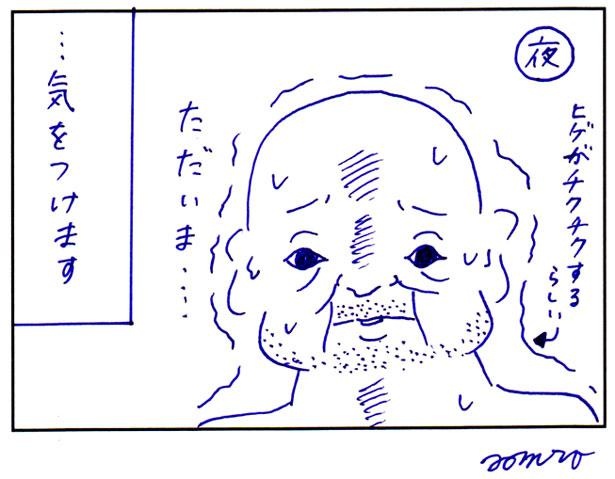 夜
ヒゲがチクチクする
らしい
ただいま‥‥
…気をつけます